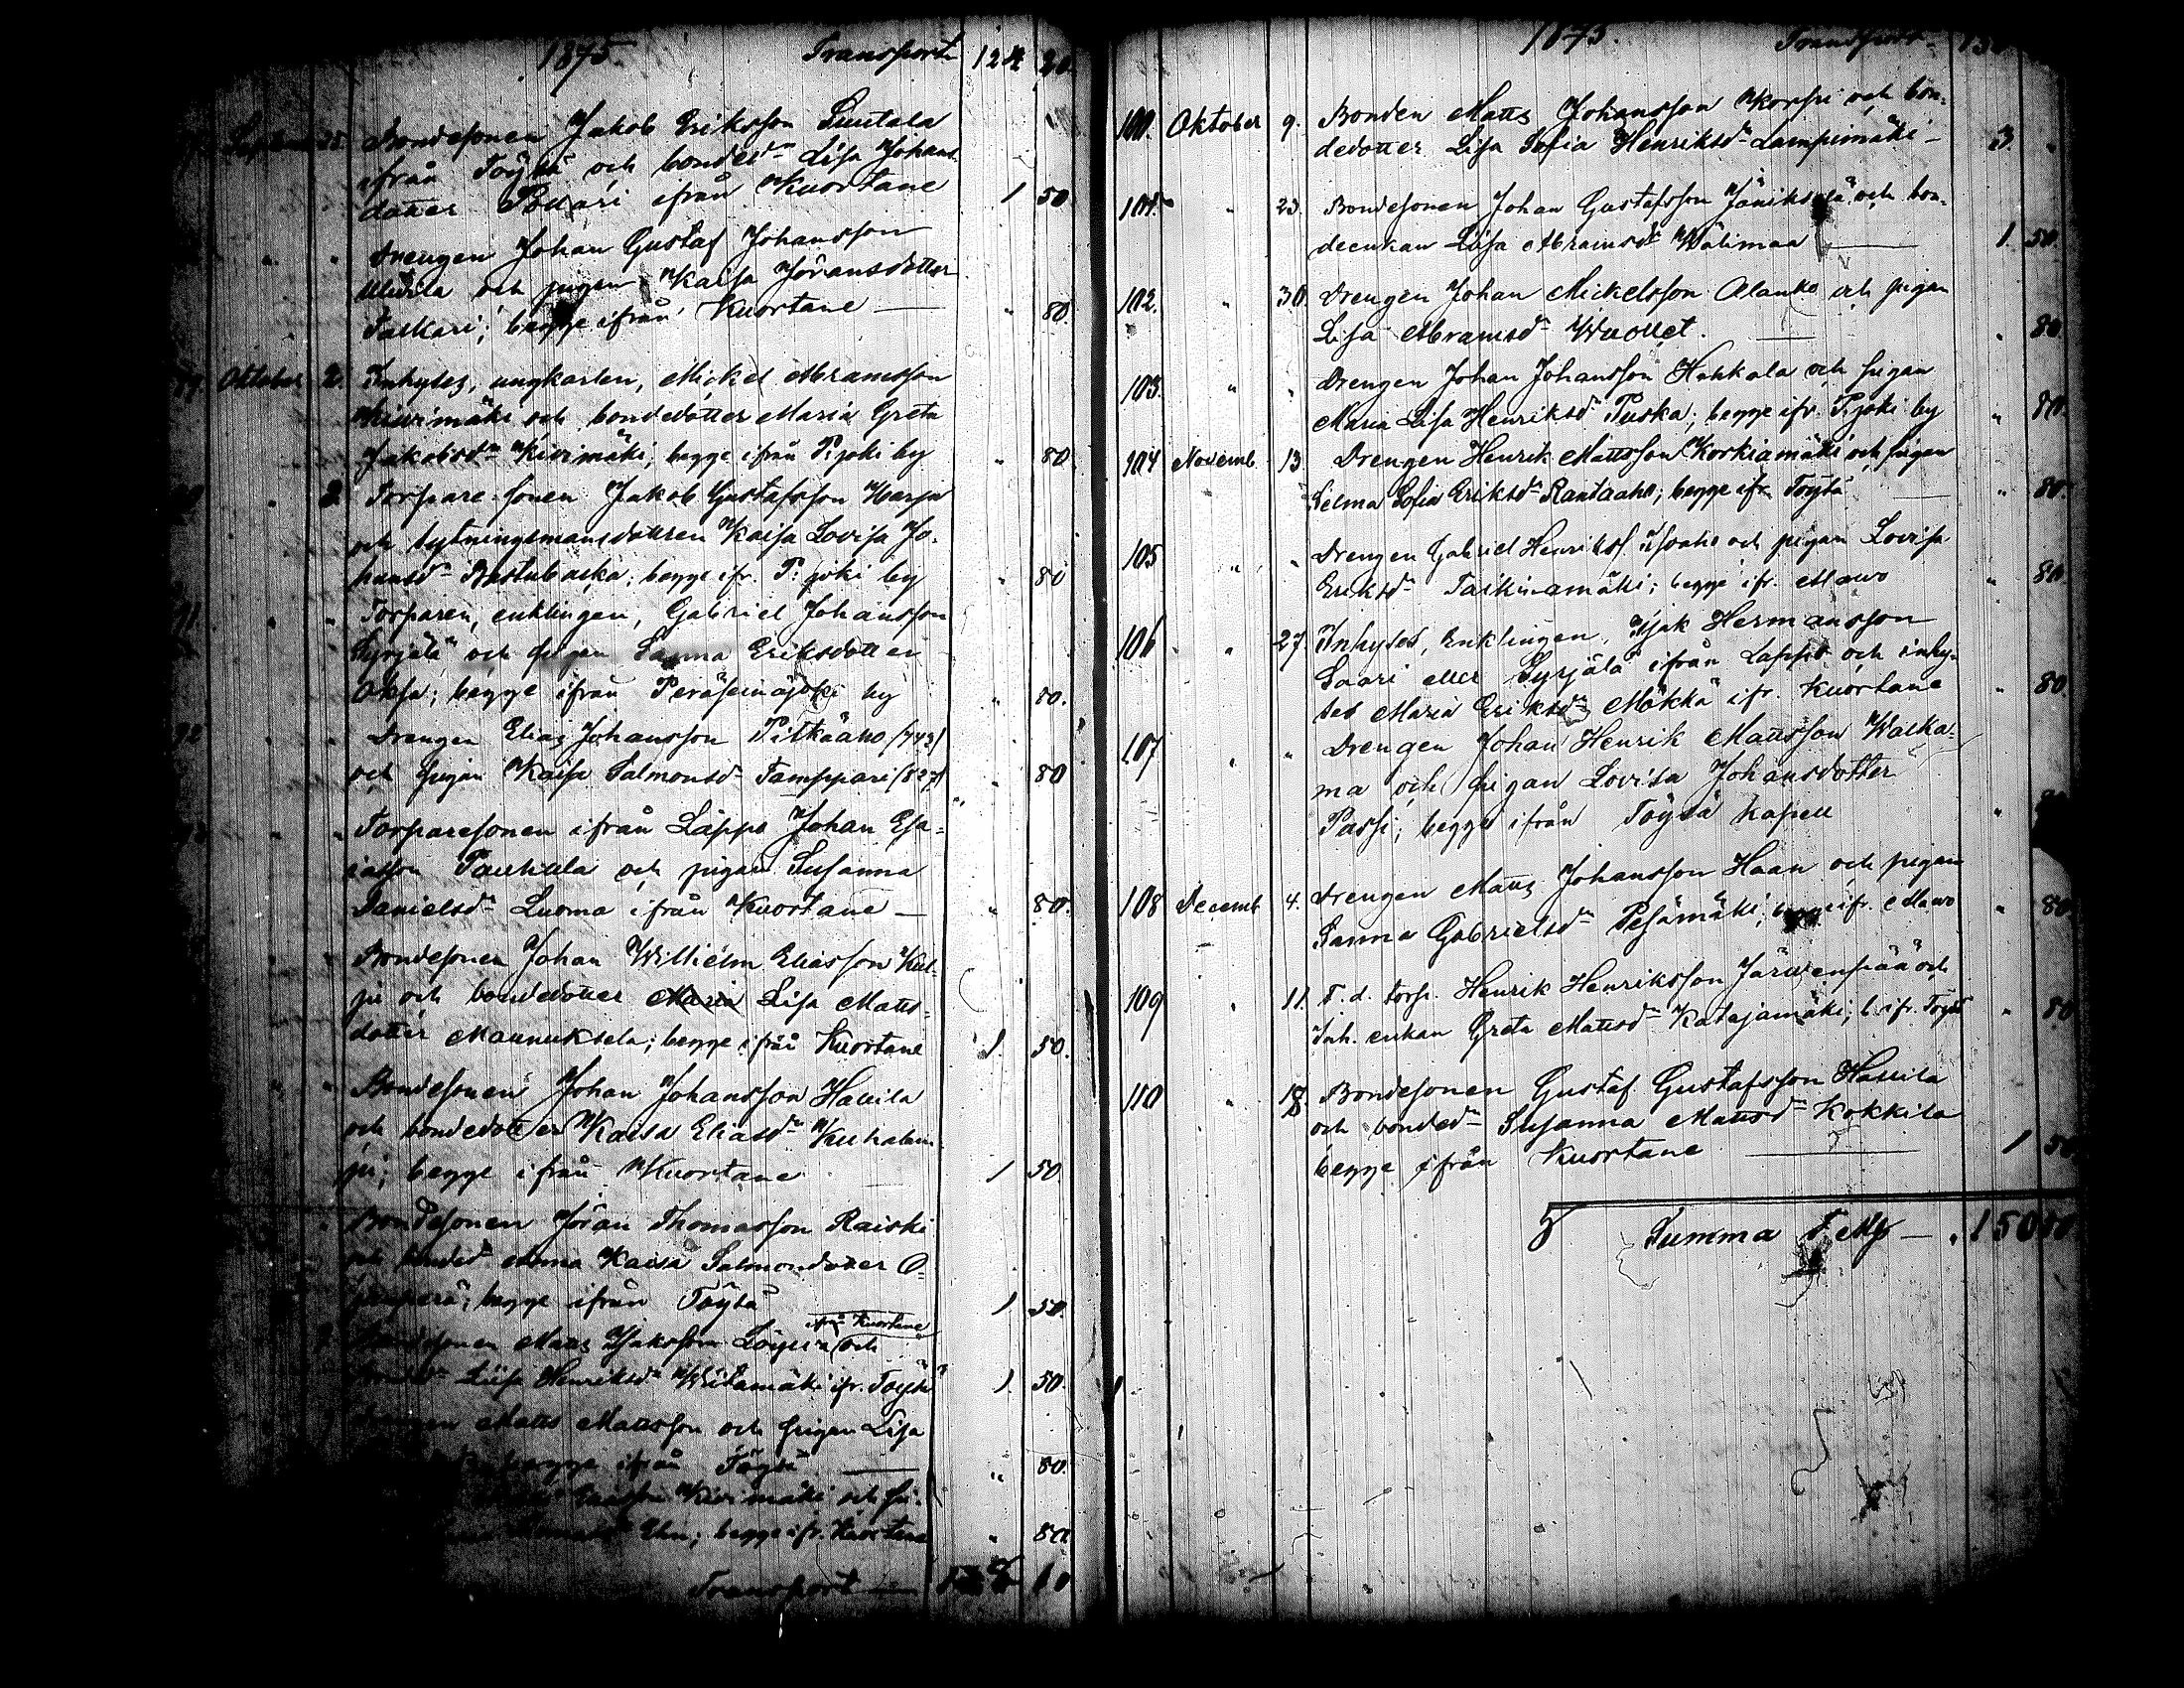 1875. Transport 124 20.
Septemb 25. Bondesonen Jakob Eriksson Luutala
ifrån Töysä och bonded:n Lisa Johans-
dotter Pollari ifrån Kuortane 1 50
" " Drengen Johan Gustaf Johansson
och pigan Kaisa Jöransdotter
Talkari; begge ifrån Kuortane — " 80.
89. Oktober 2. Inhyses, ungkarlen, Mickel Abramsson
Kivimäki och bondedotter Maria Greta
Jakobsd:n Kivimäki; begge ifrån P:joki by " 80
90 " 2. Torpare-sonen Jakob Gustafsson Harju
och bytningsmansdottren Kaisa Lovisa Jo-
hansd:n Rastubacka; begge ifr. P:joki by " 80
91. " " Torparen, enklingen, Gabriel Johansson
Syrjälä och pigan Sanna Eriksdotter
Oksa; begge ifrån Peräseinäjoki by " 80.
92 " " Drengen Elias Johansson Pitkäaho (743)
och pigan Kaisa Salmonsd:n Tamppari (827) " 80
93 " " Torparesonen ifrån Lappo Johan Esa-
iasson Paukula och pigan Susanna
Danielsd:n Luoma ifrån Kuortane — " 80.
" " Bondesonen Johan Wilhelm Eliasson Kul-
ju och bondedotter Maria Lisa Matts-
dotter Maunuksela; begge ifrån Kuortane 1. 50.
" " Bondesonen Johan Johansson Hallila
och bondedotter Kaisa Eliasd:n Kuhalam-
pi; begge ifrån Kuortane 1 50.
" Bondesonen Jöran Thomasson Raiski
och bonded:n Anna Kaisa Salmondotter O-
; begge ifrån Töysä 1 50.
ifrån Kuortane
Bondesonen Matts Isaksson och
bonded:n Lisa Henriksd:n Witamäki ifr. Töysä 1. 50.
Drengen Matts Mattsson och pigan Lisa
begge ifrån Töysä — " 80.
Kivimäki och pi-
Elm; begge ifr. Kuortane " 80.
Transport — 138 10
1875. Transport 138
100. Oktober 9. Bonden Matts Johansson Korpi och bon-
dedotter Lisa Sofia Henriksd:n Lampimäki — 3. "
101. " 23. Bondesonen Johan Gustafsson Jänikselä och bon-
deenkan Lisa Abramsd:n Wälimaa — 1. 50.
102. " 30. Drengen Johan Mickelsson Alanko och pigan
Lisa Abramsd:n Wuollet. — " 80.
103. " " Drengen Johan Johansson Hakkala och pigan
Maria Lisa Henriksd:n Puska; begge ifr. P:joki by " 80.
104 Novemb 13 Drengen Henrik Mattsson Korkiamäki och pigan
Selma Sofia Eriksd:n Rantaaho; begge ifr. Töysä " 80.
105 " " Drengen Gabriel Henrikss. Isoaho och pigan Lovisa
Eriksd:n Taikinamäki; begge ifr. Alavo " 80.
106 " 27. Inhyses, Enklingen, Isak Hermansson
Saari eller Syrjälä ifrån Lappo och inhy-
ses Maria Eriksd:n Mökkä ifr. Kuortane " 80
107 " " Drengen Johan Henrik Mattsson Walka-
ma och pigan Lovisa Johansdotter
Passi; begge ifrån Töysä kapell " 80
108 Decemb 4. Drengen Matts Johansson Haan och pigan
Sanna Gabrielsd:n Pesämäki; begge ifr. Alavo " 80
109 " 11. F.d. torp. Henrik Henriksson Järvenpää och
Inh. enkan Greta Mattsd:n Katajamäki; b. ifr. Töysä " 80
110 " 18. Bondesonen Gustaf Gustafsson Hallila
och bonded:n Susanna Mattsd:n Kokkila
begge ifrån Kuortane — 1 50
Summa Fmk — 150